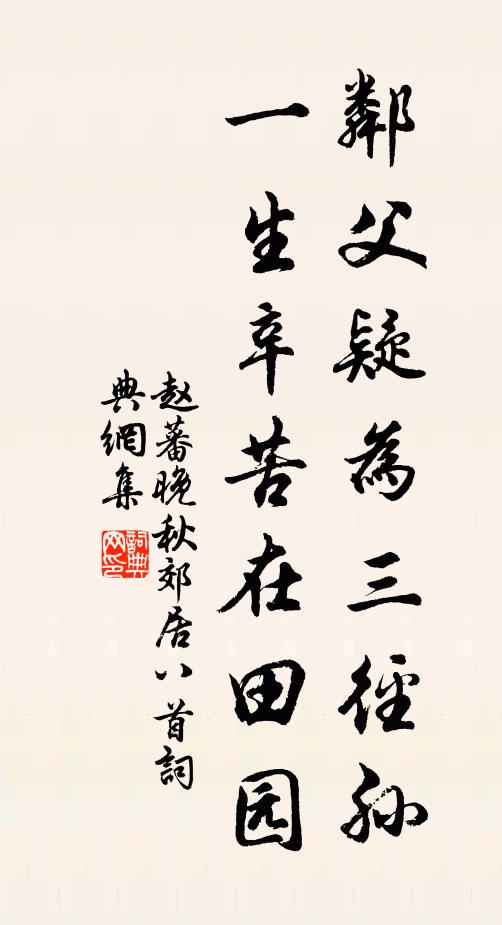 鄰父疑為三徑孫
一生辛苦在田园
赵蕃晚秋郊居八首詞
典網集
詞典
网印